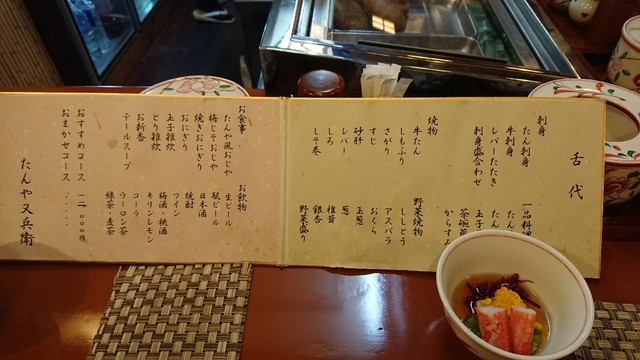 舌代
刺身
たん刺身
牛刺身
レバーたたき
刺身盛合わせ
一品料理
たん
たん
玉子
茶碗蒸
からすみ
焼物
牛たん
しもふり
さがり
すじ
砂肝
レバー
しろ
しそ巻
野菜焼物
ししとう
アスパラ
おくら
玉葱
葱
椎茸
銀杏
野菜盛り
お食事
たんや風おじや
梅じそおじや
焼きおにぎり
おにぎり
玉子雑炊
とり雑炊
お新香
テールスープ
お飲物
生ビール
瓶ビール
日本酒
焼酎
ワイン
梅酒・桃酒
キリンレモン
コーラ
ウーロン茶
緑茶・麦茶
おすすめコース
おまかせコース
たんや又兵衛